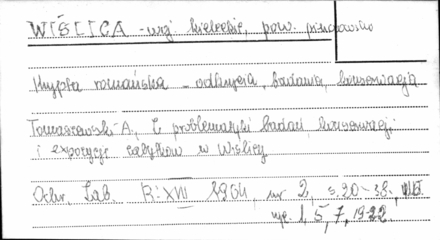 WIŚLICA - woj. kieleckie, pow. pińczowski
Krypta romańska - odkrycia, badania, konserwacja
Tomaszewski A., Z problematyki badań, konserwacji
i ekspozycji zabytków w Wiślicy
Ochr. Zab. R: XVII 1964, nr 2, s. 20-38,
ryc. 1, 5, 7, 19-22.